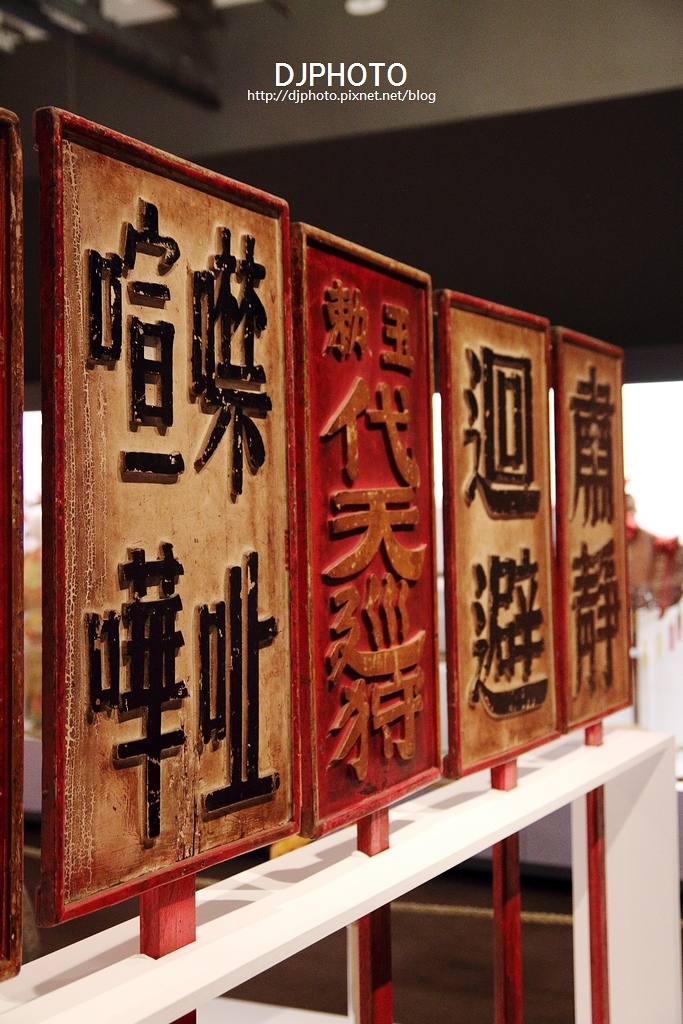 DJPHOTO
http://djphoto.pixnet.net/blog
噤
喧嘩
玉勅
代天巡狩
迴避
肅靜